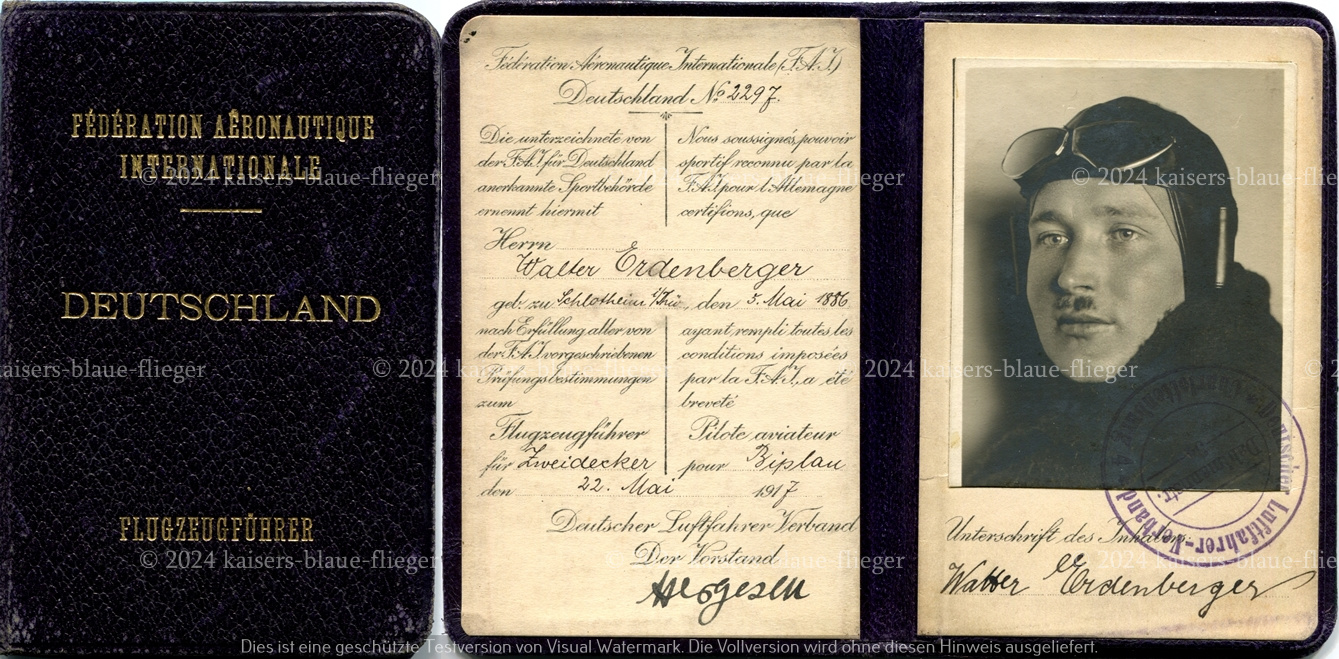 FÉDÉRATION AÉRONAUTIQUE
INTERNATIONALE
DEUTSCHLAND
FLUGZEUGFÜHRER
Fédération Aéronautique Internationale (F.A.I.)
Deutschland No 2297.
Die unterzeichnete von
der F.A.I. für Deutschland
anerkannte Sportbehörde
ernennt hiermit
Nous soussignés, pouvoir
sportif reconnu par la
F.A.I. pour l'Allemagne
certifions, que
Herrn
Walter Erdenberger
geb. zu Schlotheim i/Thü. den 5. Mai 1886
nach Erfüllung aller von
der F.A.I. vorgeschriebenen
Prüfungsbestimmungen
zum
Flugzeugführer
für Zweidecker
ayant rempli toutes les
conditions imposées
par la F.A.I., a été
breveté
Pilote aviateur
pour Biplan
den 22. Mai 1917
Deutscher Luftfahrer Verband
Der Vorstand
Unterschrift des Inhabers:
Walter Erdenberger
Deutscher Luftfahrer-Verband
© 2024 kaisers-blaue-flieger
© 2024 kaisers-blaue-flieger
© 2024 kaisers-blaue-flieger
kaisers-blaue-flieger
© 2024 kaisers-blaue-flieger
© 2024 kaisers-blaue-flieger
© 2024 kaisers-blaue-flieger
© 2024 kaisers-blaue-flieger
© 2024 kaisers-blaue-flieger
Dies ist eine geschützte Testversion von Visual Watermark. Die Vollversion wird ohne diesen Hinweis ausgeliefert.